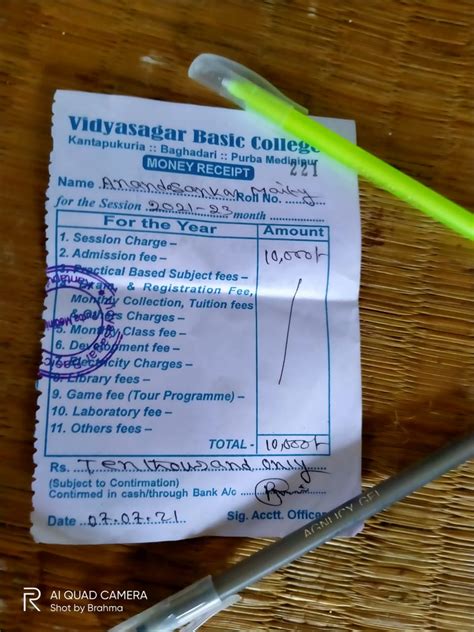 Vidyasagar Basic College
Kantapukuria :: Baghadari :: Purba Medinipur
MONEY RECEIPT 221
Name Anandsankar Maity Roll No.
for the Session 2021-23 month
For the Year Amount
1. Session Charge –
2. Admission fee – 10,000/-
3. Practical Based Subject fees –
& Registration Fee,
Monthly Collection, Tuition fees
5. Monthly Class fee –
6. Development fee –
Electricity Charges –
8. Library fees –
9. Game fee (Tour Programme) –
10. Laboratory fee –
11. Others fees –
TOTAL - 10,000/-
Rs. Ten thousand only
(Subject to Confirmation)
Contirmed in cash/through Bank A/c
Date 07.07.21 Sig. Acctt. Officer
AGNI CY GEL
R AI QUAD CAMERA
Shot by Brahma